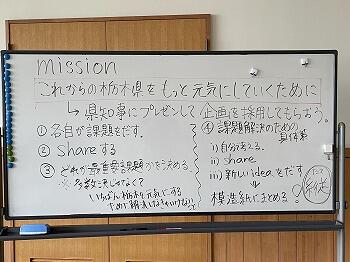 mission
これからの栃木県をもっと元気にしていくために
↳ 県知事にプレゼンして企画を採用してもらおう。
① 各自が課題をだす。
② shareする
③ どれが最重要課題かを決める。
※ 多数決じゃなくて
いちばん栃木を元気にする
ために解決しなきゃいけない
④ 課題解決のための
具体策
i) 自分で考える。
ii) share
iii) 新しいideaをだす
↓
模造紙にまとめる。